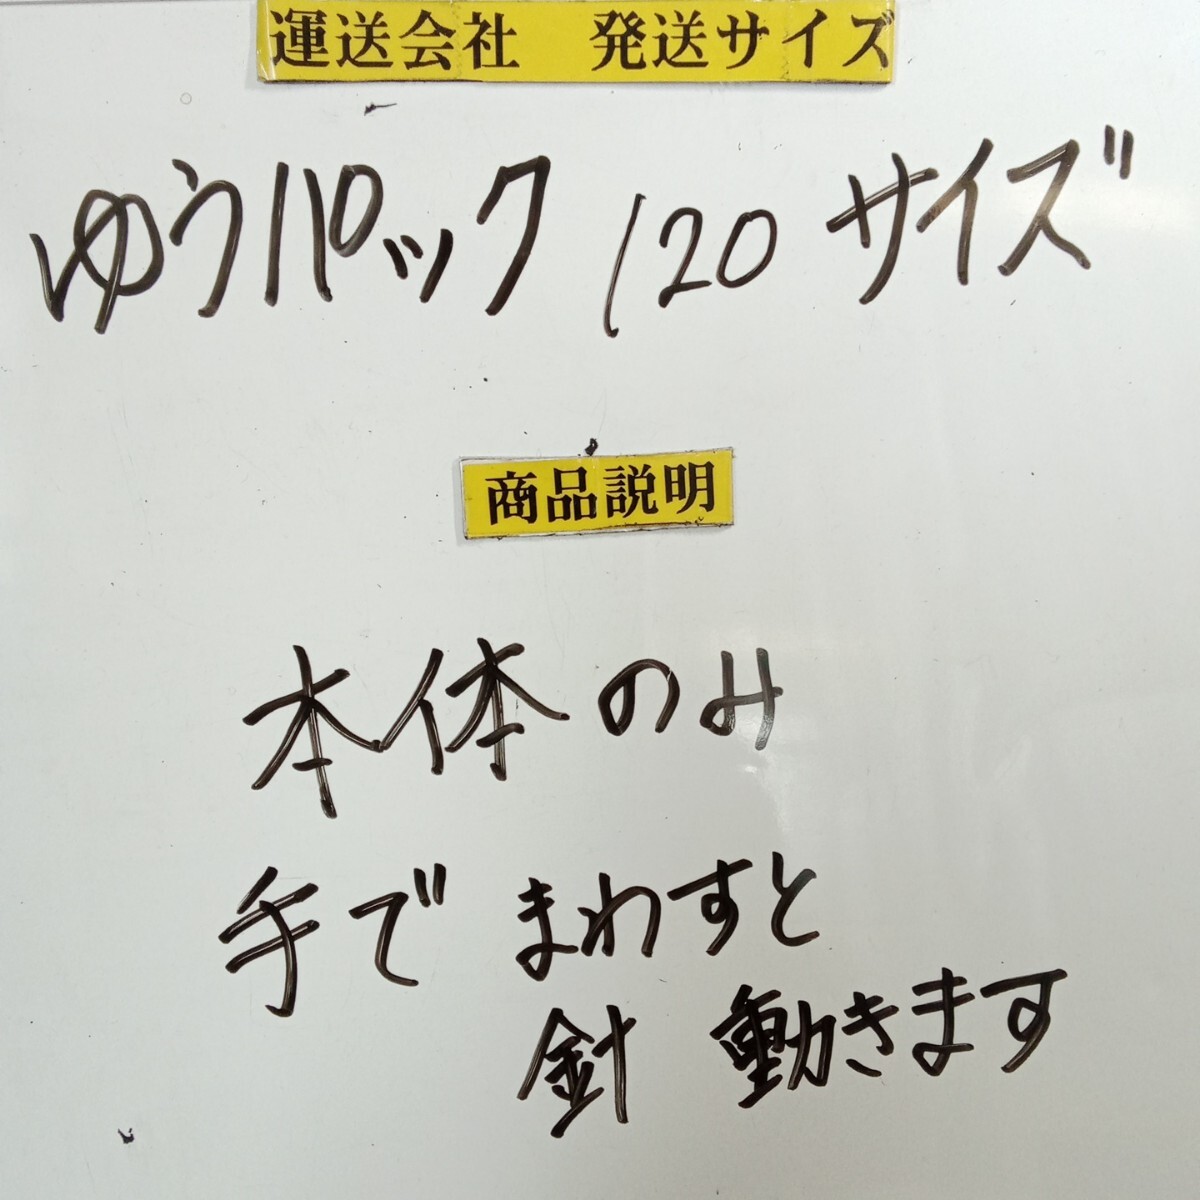 運送会社　発送サイズ
ゆうパック 120 サイズ
商品説明
本体のみ
手で まわすと
針 動きます